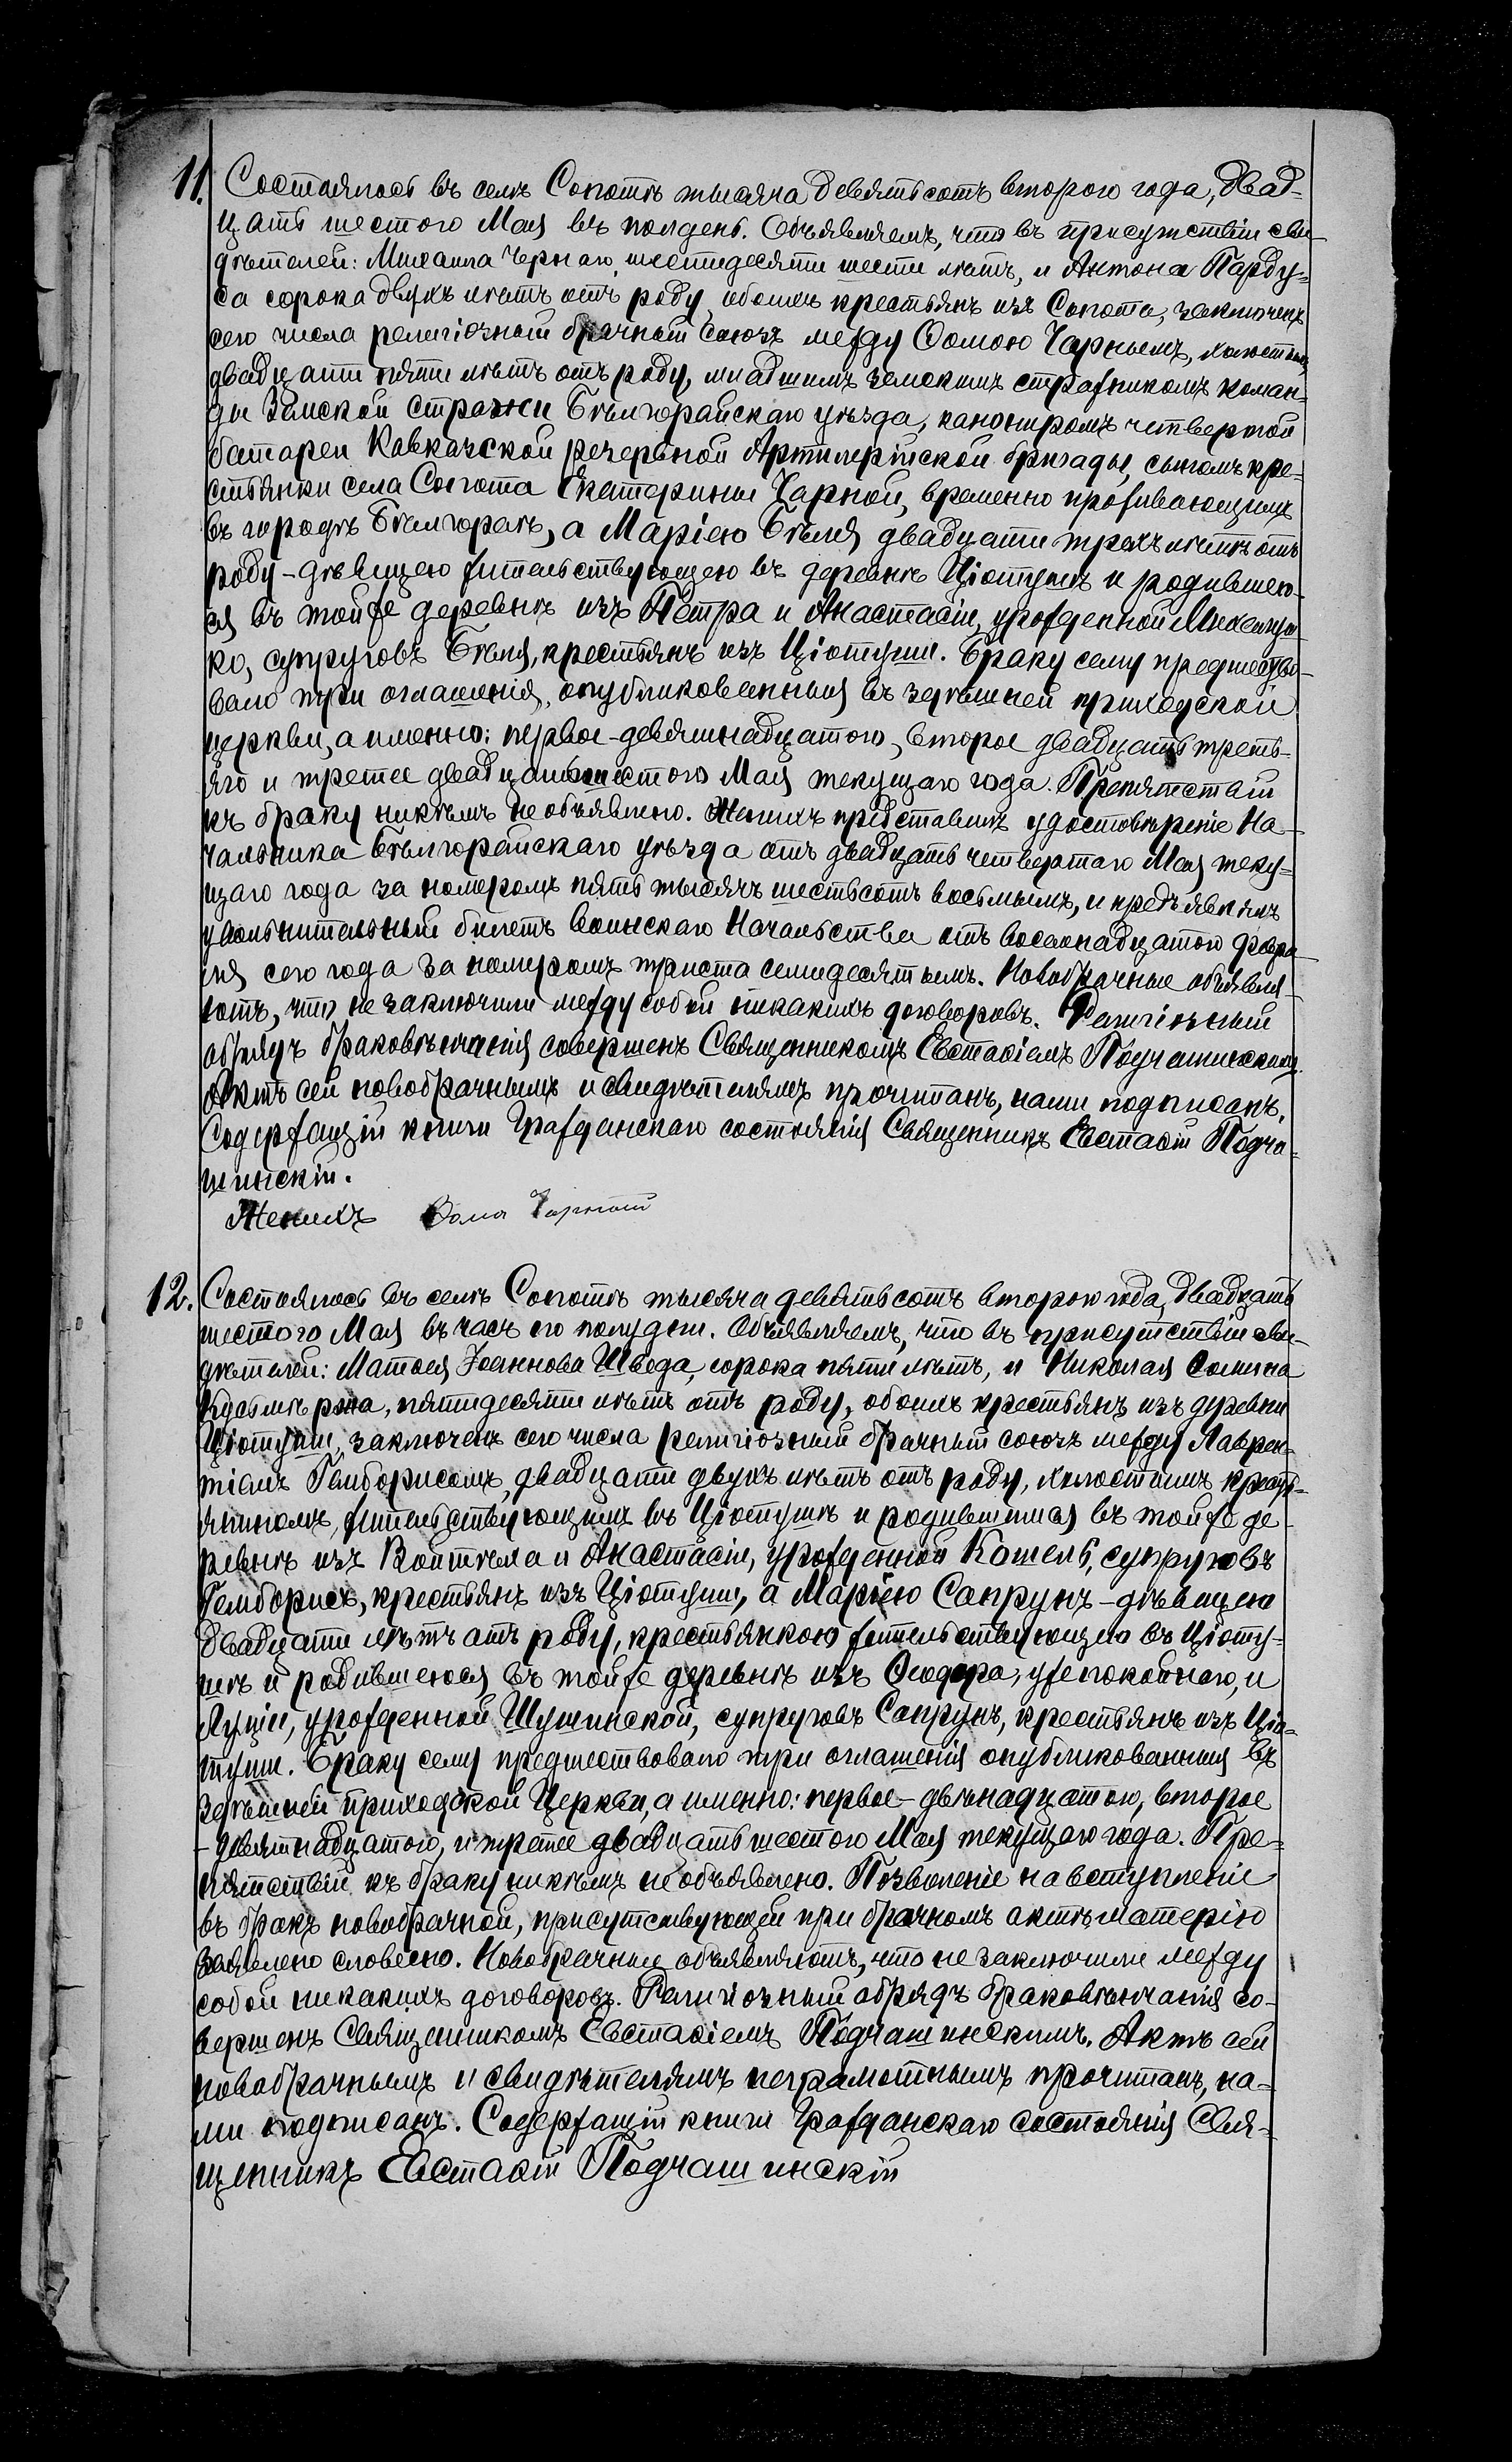 11. Состоялось въ селѣ Сопотѣ тысяча девятьсотъ второго года, двад-
цать шестого Мая въ полдень. Объявляемъ, что въ присутствіи сви-
дѣтелей: Михаила Чернаго, шестидесяти шести лѣтъ, и Антона Парду-
са сорока двухъ лѣтъ отъ роду, обоихъ крестьянъ изъ Сопота, заключенъ
сего числа религіозный брачный союзъ между Ѳомою Чарнымъ, холостымъ,
двадцати пяти лѣтъ отъ роду, младшимъ земскимъ стражникомъ коман-
ды Земской стражи Бѣлгорайскаго уѣзда, канониромъ четвертой
батареи Кавказской резервной Артилерійской бригады, сыномъ кре-
стьянки села Сопота Екатерины Чарной, временно проживающимъ
въ городѣ Бѣлгораѣ, а Маріею Бѣля двадцати трехъ лѣтъ отъ
роду - дѣвицею жительствующею въ деревнѣ Ціотушѣ и родившею-
ся въ тойже деревнѣ изъ Петра и Анастасіи, урожденной
ко, супруговъ Бѣля, крестьянъ изъ Ціотуши. Браку сему предшество-
вало три оглашенія, опубликованныя въ здѣшней приходской
церкви, а именно: первое - девятнадцатого, второе двадцать треть-
яго и третее двадцать шестого Мая текущаго года. Препятствій
къ браку никѣмъ не объявлено. Женихъ представилъ удостовѣреніе На-
чальника Бѣлгорайскаго уѣзда отъ двадцать четвертаго Мая теку-
щаго года за номеромъ пять тысячъ шестьсотъ восьмымъ, и предъявилъ
увольнительный билетъ воинскаго Начальства отъ восемнадцатого февра-
ля сего года за номеромъ триста семидесятымъ. Новобрачные объявля-
ютъ, что не заключили между собой никакихъ договоровъ. Религіозный
обрядъ браковѣнчанія совершенъ Священникомъ Евстаѳіемъ Подчашинскимъ.
Актъ сей новобрачнымъ и свидѣтелямъ прочитанъ, нами подписанъ.
Содержащій книги Гражданскаго состоянія Священникъ Евстаѳій Подча-
шинскій.
Женихъ Ѳома Чарный
12. Состоялось въ селѣ Сопотѣ тысяча девятьсотъ второго года, двадцать
шестого Мая въ часъ по полудни. Объявляемъ, что въ присутствіи сви-
дѣтелей: Матѳея Іоаннова Шведа, сорока пяти лѣтъ, и Николая
пятидесяти лѣтъ отъ роду, обоихъ крестьянъ изъ деревни
Ціотуши, заключенъ сего числа религіозный брачный союзъ между Лаврен-
тіемъ Гемборисомъ, двадцати двухъ лѣтъ отъ роду, холостымъ кресть-
яниномъ, жительствующимъ въ Ціотушѣ и родившимся въ тойже де-
ревнѣ изъ Войтѣха и Анастасіи, урожденной Кошель, супруговъ
Гемборисъ, крестьянъ изъ Ціотуши, а Маріею Сапрунъ - дѣвицею
двадцати лѣтъ отъ роду, крестьянкою жительствующею въ Ціоту-
шѣ и родившеюся въ тойже деревнѣ изъ Ѳеодора, уже покойнаго, и
Луціи, урожденной Шушинской, супруговъ Сапрунъ, крестьянъ изъ Ціо-
туши. Браку сему предшествовало три оглашенія опубликованныя въ
здѣшней приходской Церкви, а именно: первое - двѣнадцатою, второе
- девятнадцатого, и третее двадцать шестого Мая текущаго года. Пре-
пятствій къ браку никѣмъ не объявлено. Позволеніе на вступленіе
въ бракъ новобрачной, присутствующей при брачномъ актѣ матерію
заявлено словесно. Новобрачные объявляютъ, что не заключили между
собой никакихъ договоровъ. Религіозный обрядъ браковѣнчанія со-
вершенъ Священникомъ Евстаѳіемъ Подчашинскимъ. Актъ сей
новобрачнымъ и свидѣтелямъ неграмотнымъ прочитанъ, на-
ми подписанъ. Содержащій книги Гражданскаго состоянія Свя-
щенникъ Евстаѳій Подчашинскій